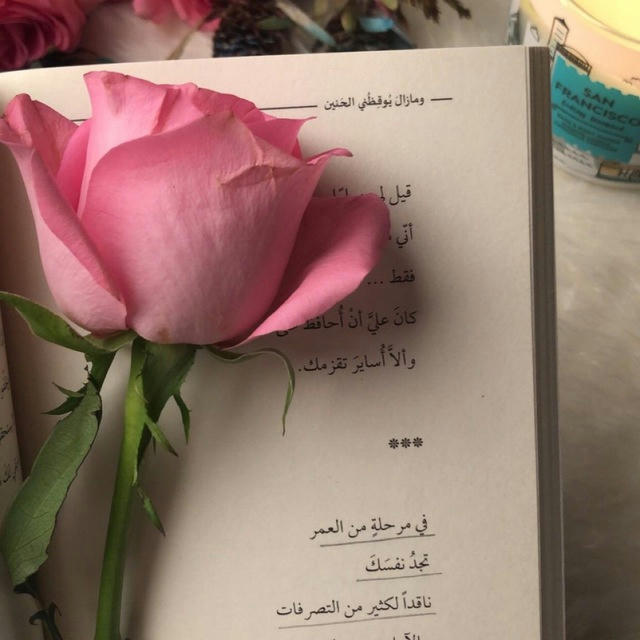 ومازالَ يُوقِظُني الحَنين
قيل لي
أنّي
فقط ...
كانَ عليَّ أنْ أُحافظ
وألاَّ أُسايرَ تقزمك.
***
في مرحلةٍ من العمر
تجدُ نفسَكَ
ناقداً لكثير من التصرفات
SAN
FRANCISCO